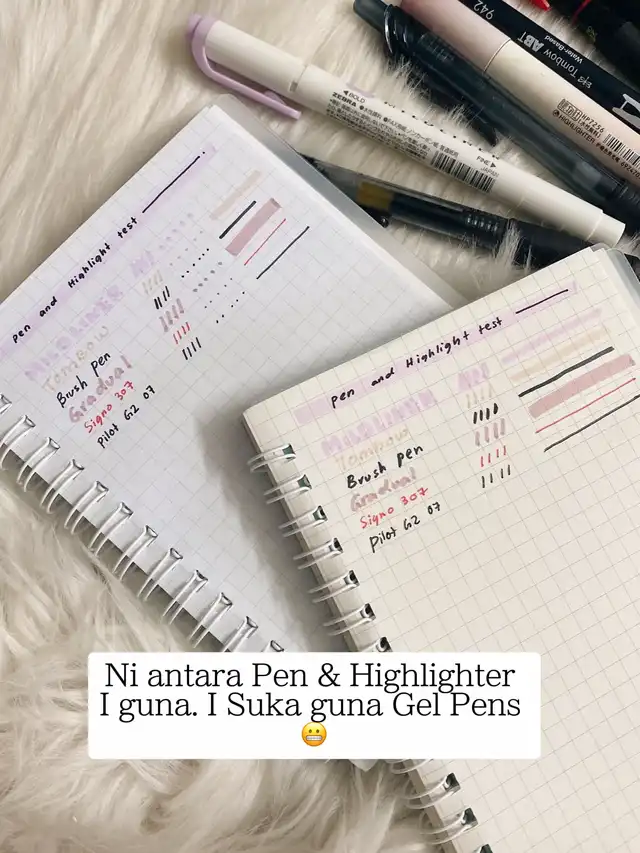 942
ABT
Tombow
Water-Based
BOLD
ZEBRA
FINE
JAPAN
HIGHLIGHTER
pen and Highlight test
MILDLINER
Tombow
Brush Pen
Gradual
Signo 307
Pilot G2 07
pen and Highlight test
MILDLINER
Tombow
Brush pen
Gradual
Signo 307
pilot G2 07
Ni antara Pen & Highlighter
I guna. I Suka guna Gel Pens
😬